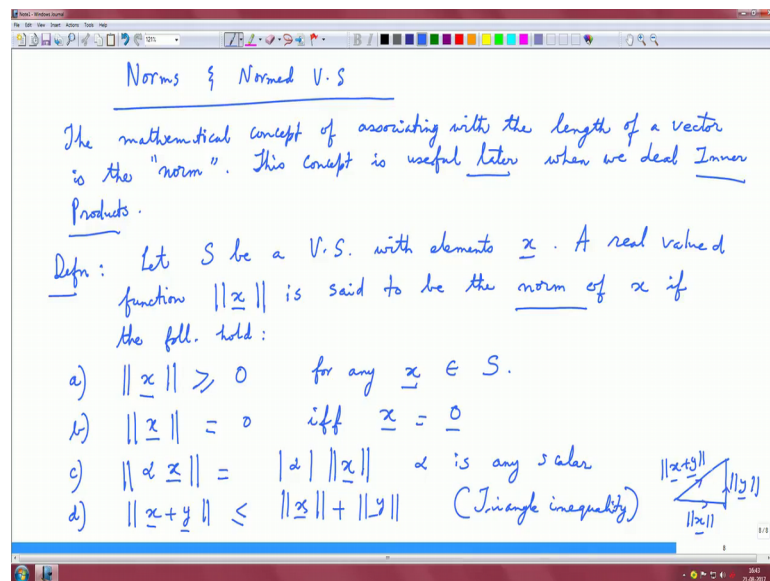 Note1 - Windows Journal
File Edit View Insert Actions Tools Help
121%
B I
Norms & Normed V.S
The mathematical concept of associating with the length of a vector
is the "norm". This concept is useful later when we deal Inner
Products.
Defn: Let S be a V.S. with elements x. A real valued
function ||x|| is said to be the norm of x if
the foll. hold:
a) ||x|| ⩾ 0 for any x ∈ S.
b) ||x|| = 0 iff x = 0
c) ||α x|| = |α| ||x|| α is any scalar
d) ||x+y|| ≤ ||x|| + ||y|| (Triangle inequality)
||x+y||
||y||
||x||
8/8
8
16:43